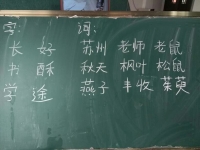 字： 词：
长 好 苏州 老师 老鼠
书 酥 秋天 枫叶 松鼠
学 途 燕子 丰收 茱萸